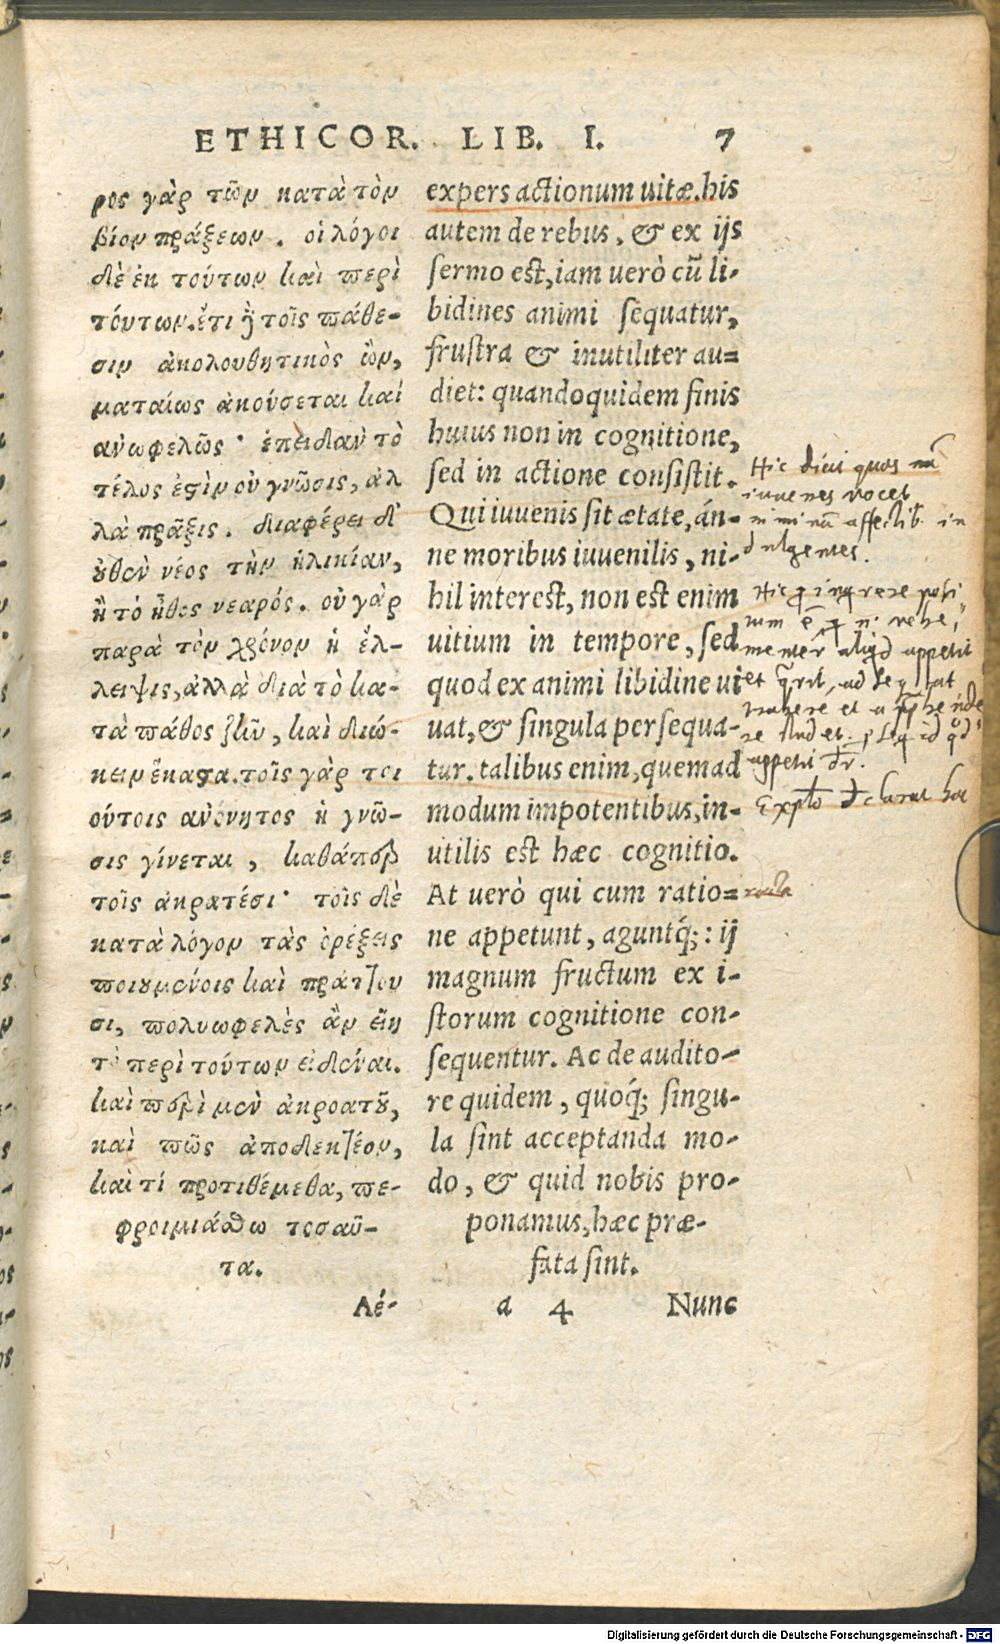 ETHICOR. LIB. I. 7
ρος γὰρ τῶν κατὰ τὸν
βίον πράξεων. οἱ λόγοι
δὲ ἐκ τούτων καὶ περὶ
τούτων. ἔτι ἢ τοῖς πάθε-
σιν ἀκολουθητικὸς ὢν,
ματαίως ἀκούσεται καὶ
ανωφελῶς· ἐπειδὰν τὸ
τέλος ἐστὶν οὐ γνῶσις, ἀλ
λὰ πρᾶξις. διαφέρει δ'
οὐθὲν νέος τὴν ἡλικίαν,
ἢ τὸ ἦθος νεαρός. οὐ γὰρ
παρὰ τὸν χρόνον ἡ ἔλ-
λειψις, ἀλλὰ διὰ τὸ κα-
τὰ πάθος ζῆν, καὶ διώ-
κειν ἕκαστα. τοῖς γὰρ τοι
ούτοις ανόνητος ἡ γνῶ-
σις γίνεται, καθάπερ
τοῖς ἀκρατέσι· τοῖς δὲ
κατὰ λόγον τὰς ὀρέξεις
ποιουμένοις καὶ πράττου
σι, πολυωφελὲς ἂν εἴη
τὸ περὶ τούτων εἰδέναι.
καὶ περὶ μὲν ἀκροατοῦ,
καὶ πῶς ἀποδεκτέον,
καὶ τί προτιθέμεθα, πε-
φροιμιάσθω τοσαῦ-
τα.
Λέ-
expers actionum uitæ. his
autem de rebus, & ex ijs
sermo est, iam uerò cũ li-
bidines animi sequatur,
frustra & inutiliter au=
diet: quandoquidem finis
huius non in cognitione,
sed in actione consistit.
Qui iuuenis sit ætate, án-
ne moribus iuuenilis, ni-
hil interest, non est enim
uitium in tempore, sed
quod ex animi libidine ui
uat, & singula persequa-
tur. talibus enim, quemad
modum impotentibus, in-
utilis est hæc cognitio.
At uerò qui cum ratio=
ne appetunt, aguntq́;: ij
magnum fructum ex i-
storum cognitione con-
sequentur. Ac de audito-
re quidem, quoq́; singu-
la sint acceptanda mo-
do, & quid nobis pro-
ponamus, hæc præ-
fata sint.
a 4 Nunc
Hic quos
iuuenes vocet
in
dulgentes.
Hic
appetit
et ad
et
appetit
hoc